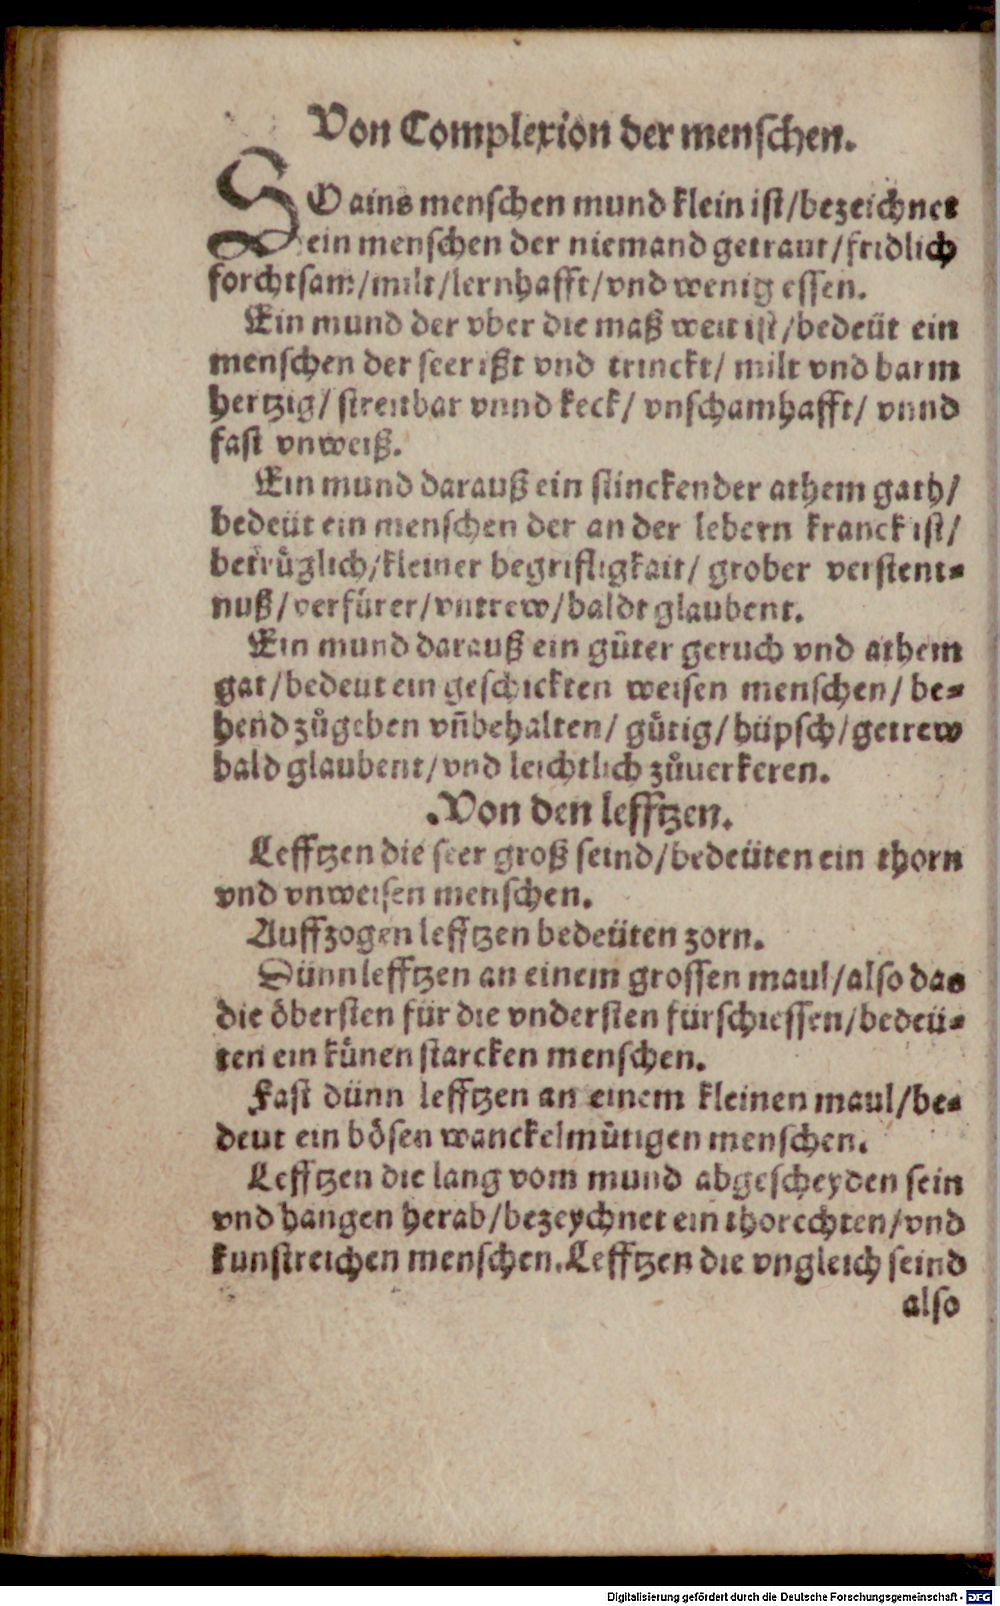 Von Complexion der menschen.
SO ains menschen mund klein ist/bezeichnet
ein menschen der niemand getraut/fridlich
forchtsam/milt/lernhafft/vnd wenig essen.
Ein mund der vber die maß weit ist/bedeüt ein
menschen der seer ißt vnd trinckt/ milt vnd barm
hertzig/ streitbar vnnd keck/ vnschamhafft/ vnnd
fast vnweiß.
Ein mund darauß ein stinckender athem gath/
bedeüt ein menschen der an der lebern kranck ist/
betrüglich/kleiner begrifligkait/ grober verstent-
nuß/verfürer/vntrew/baldt glaubent.
Ein mund darauß ein gůter geruch vnd athem
gat/bedeut ein geschickten weisen menschen/ be-
hend zůgeben vñ behalten/ gütig/hüpsch/getrew
bald glaubent/vnd leichtlich zůuerkeren.
.Von den lefftzen.
Lefftzen die seer groß seind/bedeüten ein thorn
vnd vnweisen menschen.
Auffzogen lefftzen bedeüten zorn.
Dünn lefftzen an einem grossen maul/also das
die öbersten für die vndersten fürschiessen/bedeü-
ten ein künen starcken menschen.
Fast dünn lefftzen an einem kleinen maul/be-
deut ein bösen wanckelmütigen menschen.
Lefftzen die lang vom mund abgescheyden sein
vnd hangen herab/bezeychnet ein thorechten/vnd
kunstreichen menschen. Lefftzen die vngleich seind
also
Digitalisierung gefördert durch die Deutsche Forschungsgemeinschaft - DFG